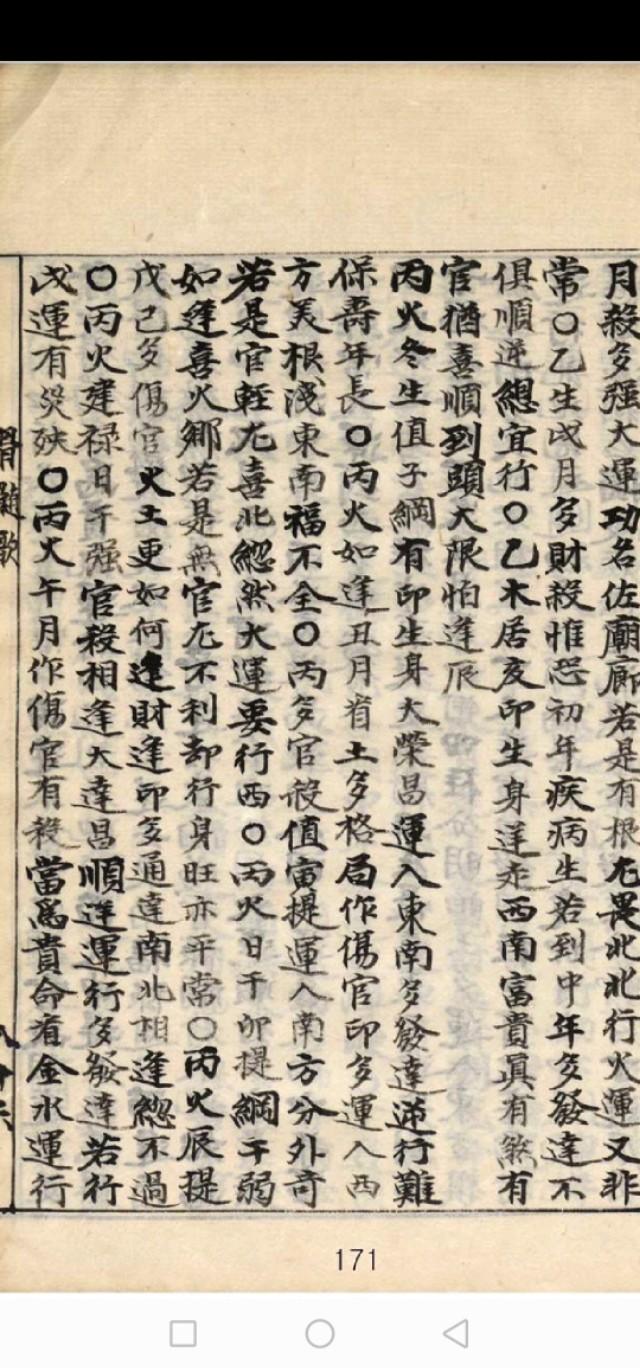 月殺多强大運功名佐廟廊若是有根尤畏北北行火運又非
常○乙生戌月多財殺惟恐初年疾病生若到中年多發達不
俱順逆總宜行○乙木居亥印生身運走西南富貴眞有煞有
官猶喜順到頭大限怕逢辰
丙火冬生值子綱有印生身大榮昌運入東南多發達逆行難
保壽年長○丙火如逢丑月省土多格局作傷官印多運入西
方美根浅東南福不全○丙多官殺值寅提運入南方分外奇
若是官輕尤喜北縂然大運要行西○丙火日干卯提綱干弱
如逢喜火鄉若是無官尤不利却行身旺亦平常○丙火辰提
戊己多傷官火土更如何逢財逢印多通達南北相逢總不過
○丙火建禄日干强官殺相逢大達昌順逆運行多發達若行
戌運有災殃○丙火午月作傷官有殺當爲貴命看金水運行
髓歌
171